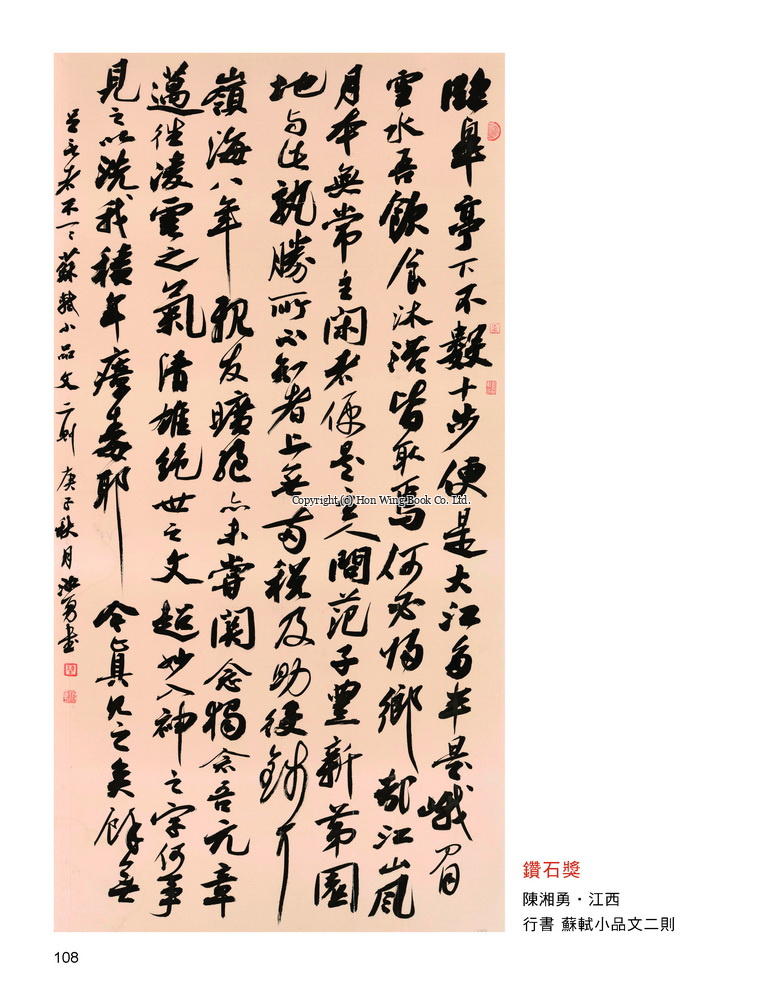 臨皋亭下不數十步便是大江多半是峨眉
雪水吾飲食沐浴皆取焉何必歸鄉哉江山風
月本無常主闲者便是主人問范子豐新第園
地与此孰勝所不如者上無两稅及助役錢尔
嶺海八年親友曠絕亦未嘗關念獨念吾元章
邁往凌雲之氣清雄絕世之文超妙入神之字何事
見之以洗我積年瘴毒耶今真見之矣餘無
足言者不一一蘇軾小品文二則庚子秋月湘勇書
Copyright (c) Hon Wing Book Co. Ltd.
鑽石獎
陳湘勇・江西
行書 蘇軾小品文二則
108